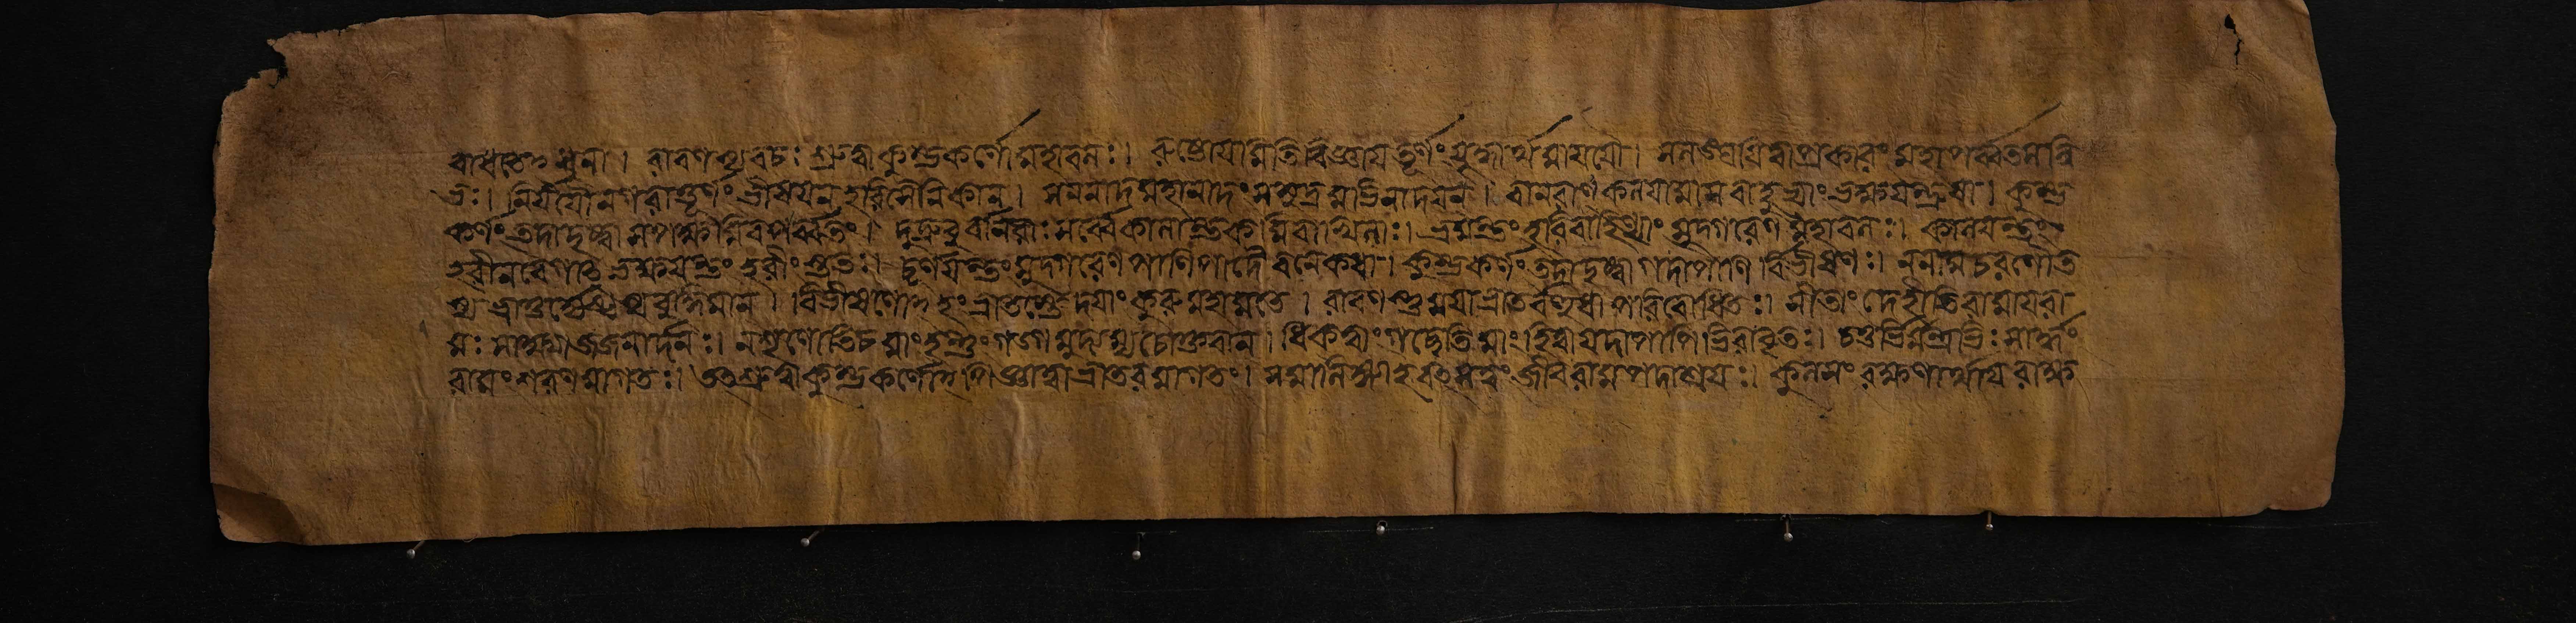 বাধতেঽধুনা । রাবণস্য বচঃ শ্রুত্বা কুম্ভকর্ণো মহাবলঃ । রুষ্টোয়মিতি বিজ্ঞায় তূর্ণং যুদ্ধার্থমাযযৌ । স লঙ্ঘয়িত্বা প্রাকারং মহাপর্ব্বতসন্নি
ভঃ । নির্যযৌ নগরাত্তূর্ণং ভীষয়ন্ হরিসৈনিকান্ । স ননাদ মহানাদং সমুদ্রমভিনাদয়ন্ । বানরান্ কালয়ামাস বাহুভ্যাং ভক্ষয়ন্রুষা । কুম্ভ
কর্ণং তদা দৃষ্ট্বা সপক্ষমিব পর্ব্বতং । দুদ্রুবুর্বানরাঃ সর্ব্বে কালান্তকমিবাখিলাঃ । ভ্রমন্তং হরিবাহিন্যাং মুদ্গরেণ মহাবলঃ । কালয়ন্তং
হরীন্ বেগাৎ ভক্ষয়ন্তং চূর্ণয়ন্তং মুদ্গরেণ পাণিপাদৈরনেকধা । কুম্ভকর্ণং তদা দৃষ্ট্বা গদাপাণির্বিভীষণঃ । ননাম চরণৌ ত
স্য ভ্রাতুর্জ্যেষ্ঠস্য বুদ্ধিমান্ । বিভীষণোঽহং ভ্রাতুস্তে দয়াং কুরু মহামতে । রাবণস্তু ময়া ভ্রাতর্বহুধা পরিবোধিতঃ । সীতাং দেহীতি রামায় রা
মঃ সাক্ষাজ্জনার্দনঃ । ন শৃণোতি চ মাং হন্তুং খড়্গমুদ্যম্য চোক্তবান্ । ধিক্ ত্বাং গচ্ছেতি মাং হত্বা পদা পাপিভিরাবৃতঃ । চতুর্ভির্মন্ত্রিভিঃ সার্দ্ধং
রামং শরণমাগতঃ । তচ্ছ্রুত্বা কুম্ভকর্ণোঽপি জ্ঞাত্বা ভ্রাতরমাগতং । সমালিঙ্গ্য চ বৎস ত্বং জীব রামপদাশ্রয়ঃ । কুলসংরক্ষণার্থায় রাক্ষ